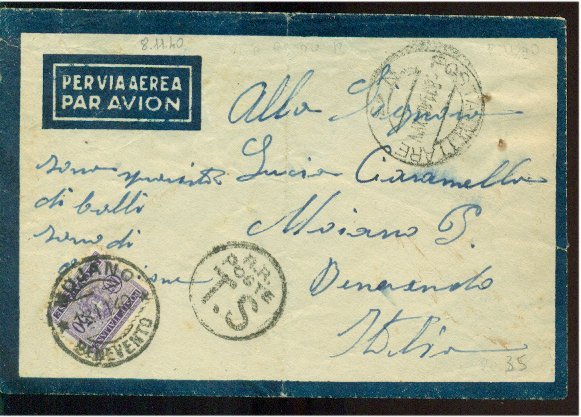 8.11.40
PER VIA AEREA
PAR AVION
POSTA MILITARE
Alla Signora
Lucia Ciaramella
Moiano P.
Benevento
Italia
sono sprovvisto
di bolli
sono di
MOJANO
BENEVENTO
R.R.
POSTE
T.S
35